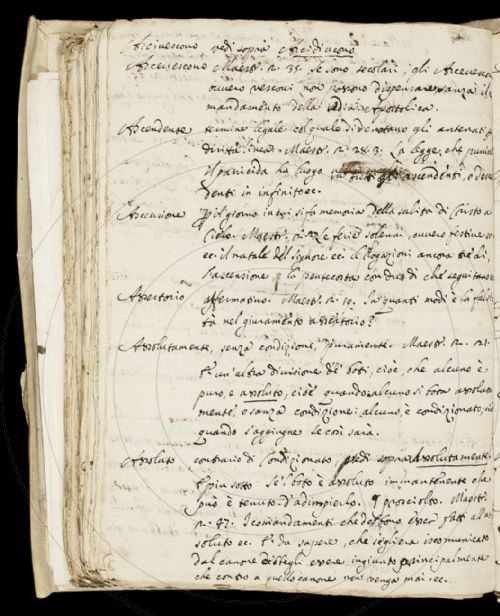 Arcivescovo vedi sopra Arcidiacono
Arcivescovo Maestr. R. 35. Se sono secolari, gli Arcivescovi
ovvero vescovi non possono dispensare senza il
mandamento della Sedia Apostolica.
Ascendente termine legale col quale si denotano gli antenati
diritta linea. Maestr. R. 28. 3. La legge, che punisce
il paricida ha luogo in tutti gli ascendenti, e
denti in infinito ec.
Ascensione il giorno in cui si fa memoria della salita di Cristo a
Cielo. Maestr. Le ferie solenni, ovvero festive
ec. il natale del signore ec. le Rogazioni ancora tre dì,
l'ascensione, la pentecosta con due dì che seguitano
Assertorio affermativo. Maestr. R. 19. In quanti modi è la falsi
tà nel giuramento assertorio?
Assolutamente, senza condizione, puramente. Maestr. R. 21.
È un'altra divisione de' boti, cioè, che alcuno è
puro, e assoluto, cioè quando alcuno si bota assoluta
mente, e sanza condizione: alcuno, è condizionato, cioè
quando s'aggiugne se così sarà.
Assoluto contrario di Condizionato, vedi sopra Assolutamente.
E più sotto Se'l boto è assoluto immantenente che
può è tenuto d'adimpierlo. Maestr.
R. 42. I comandamenti che debbono esser fatti all'as
soluto ec. È da sapere, che s'egli era iscomunicato
dal canone debbegli essere ingiunto principalmente
che contro a quello canone non venga mai ec.